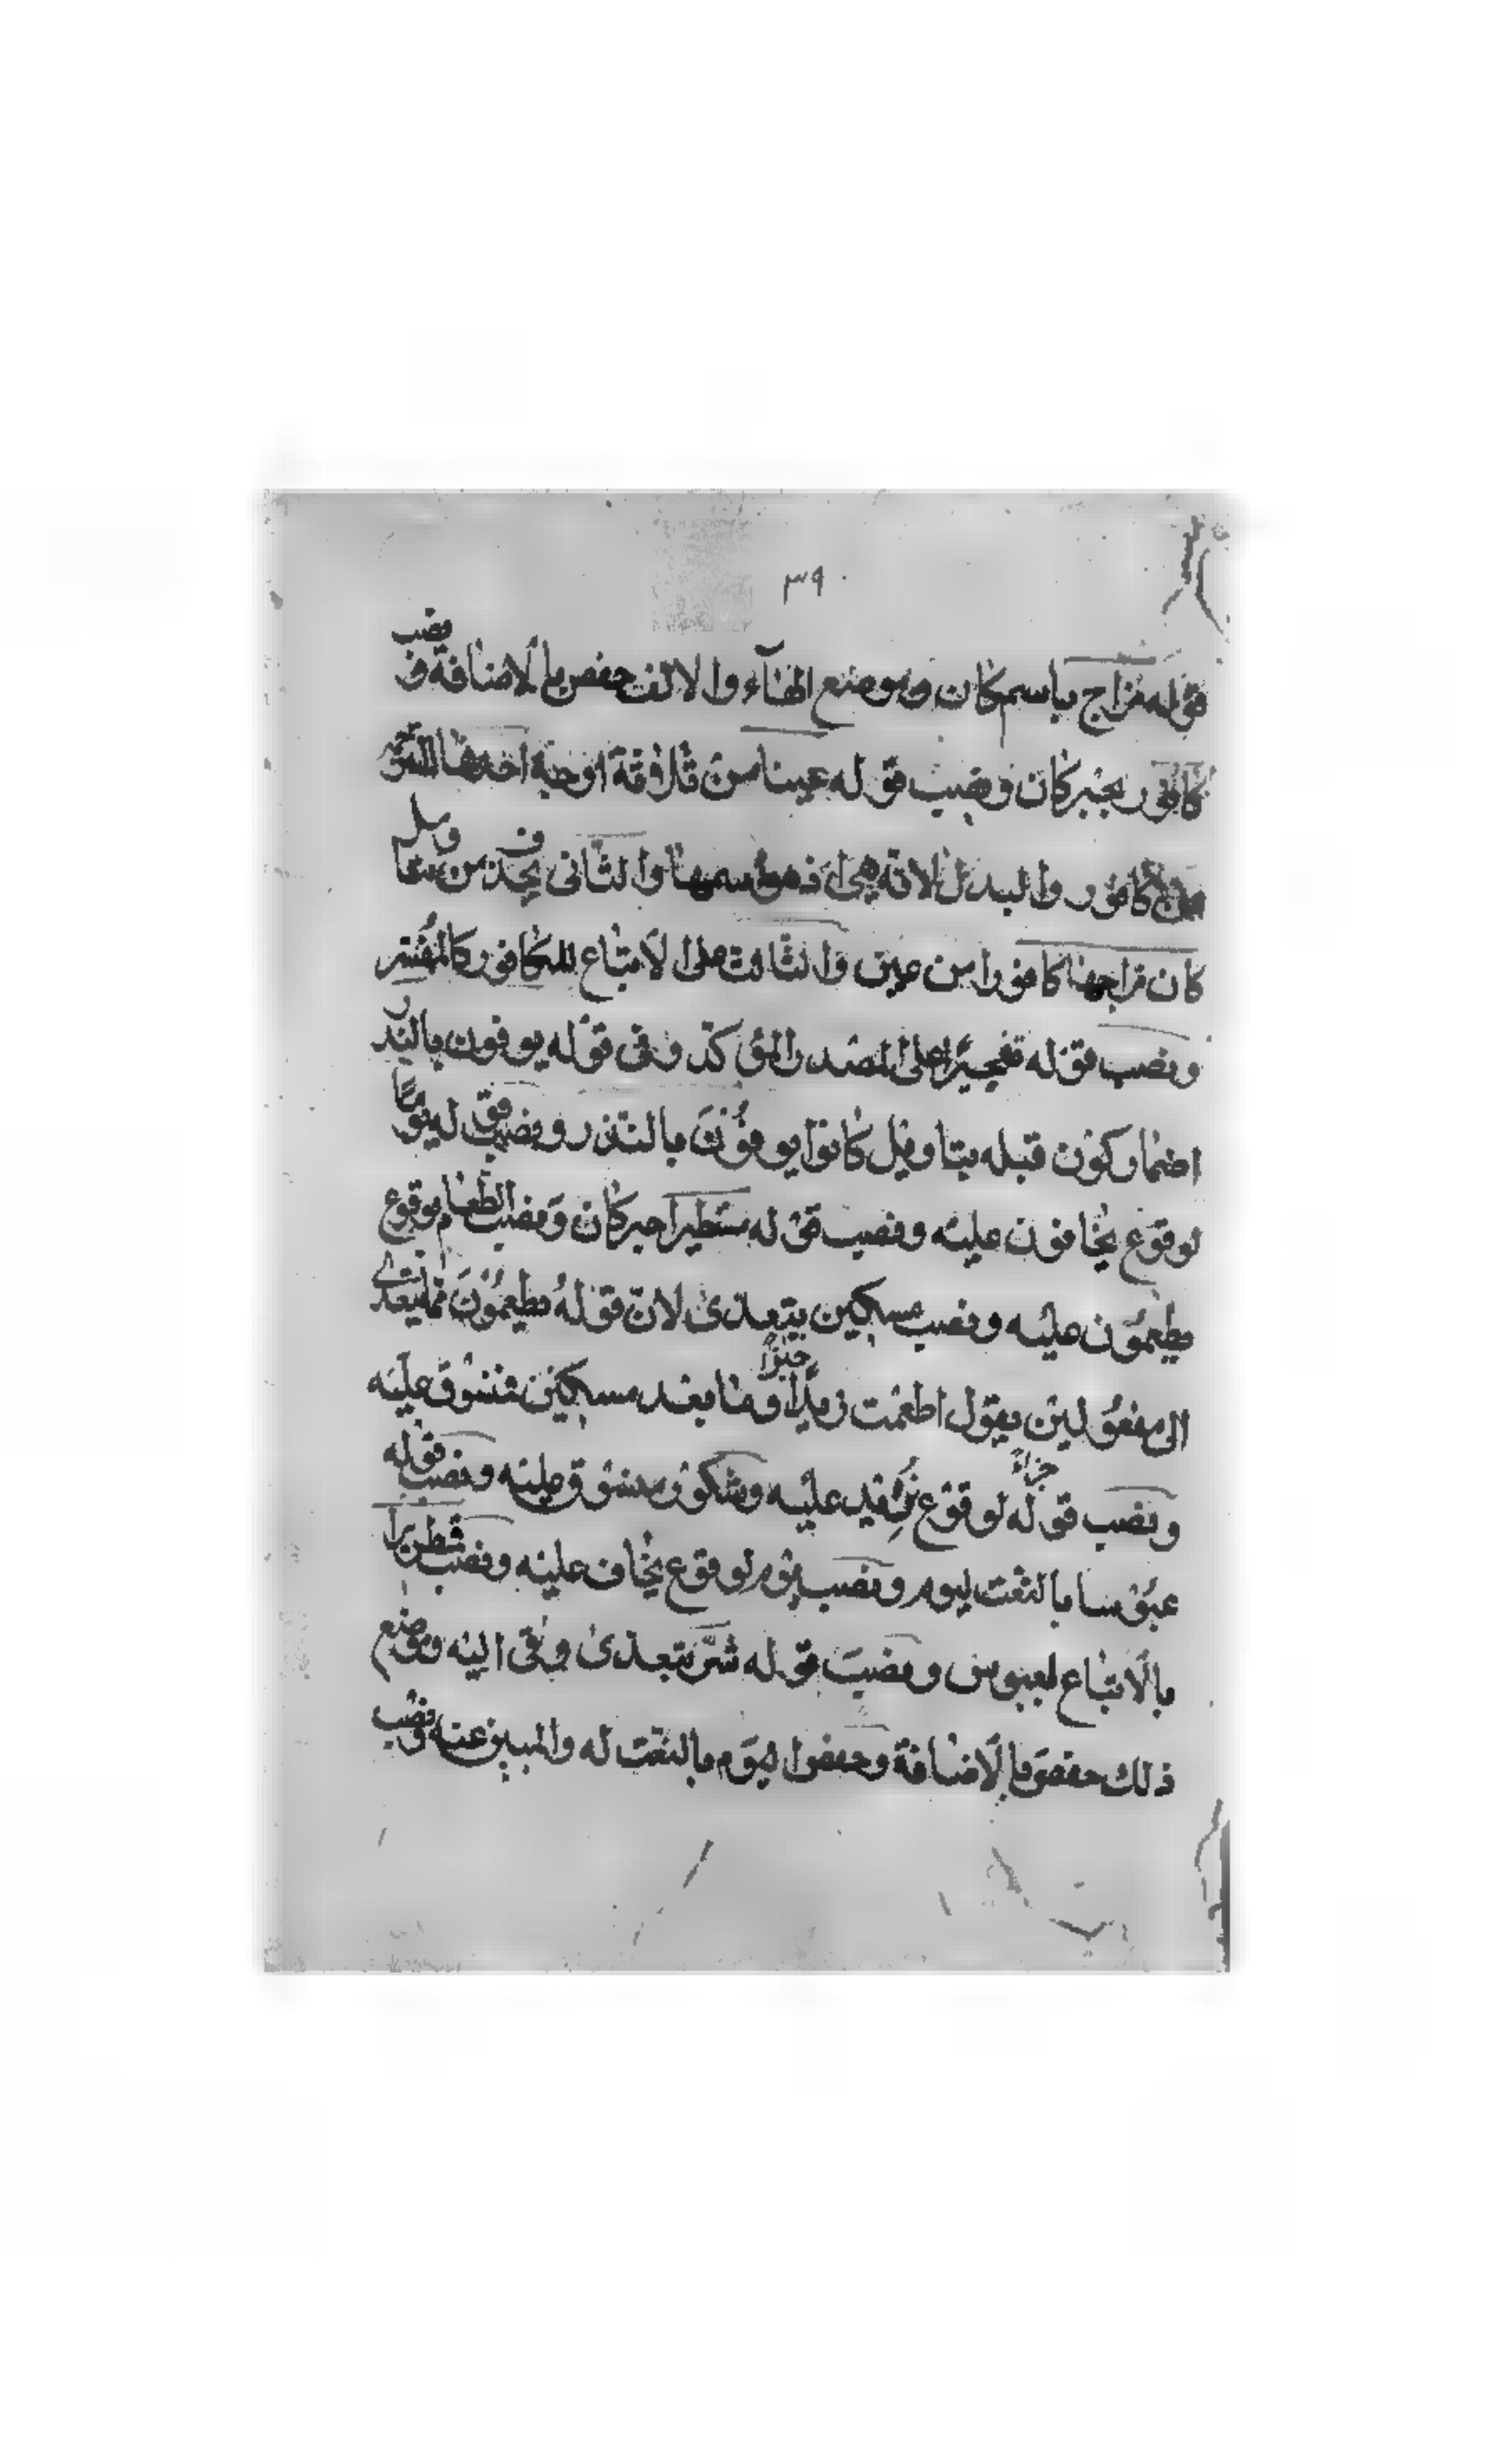 ٣٩
قوله مزاج باسم كان وموضع الهآء والالف خفض بالاضافة ونصب
كافور بخبر كان ونصب قوله عينا من ثلاثة اوجه احدها
كافور والبدل لانه هي اذ هو اسمها والثانى بحذف من وسل
كان مزاجها كافورا من عين والثالث على الاتباع للكافور كالمفسر
ونصب قوله تفجيرا على المصدر المؤكد وفى قوله يوفون بالنذر
اضمار كون قبله بتاويل كانوا يوفون بالنذر ونصب قوله يوما
لوقوع يخافون عليه ونصب قوله مستطيرا خبر كان ونصب الطعام بوقوع
يطعمون عليه ونصب مسكين بتعدى لان قوله يطعمون مما يتعدى
الى مفعولين يقول اطعمت زيدا خبزا وما بعد مسكين منسوق عليه
ونصب قوله جزاء لوقوع نريد عليه وشكور منسوق عليه ونصب قوله
عبوسا بالنعت ليوم ونصب يوم لوقوع يخاف عليه ونصب قمطريرا
بالاتباع لعبوس ونصب قوله شر بتعدى وقى اليه وموضع
ذلك خفض بالاضافة وخفض اليوم بالنعت له والمبين عنه ونصب